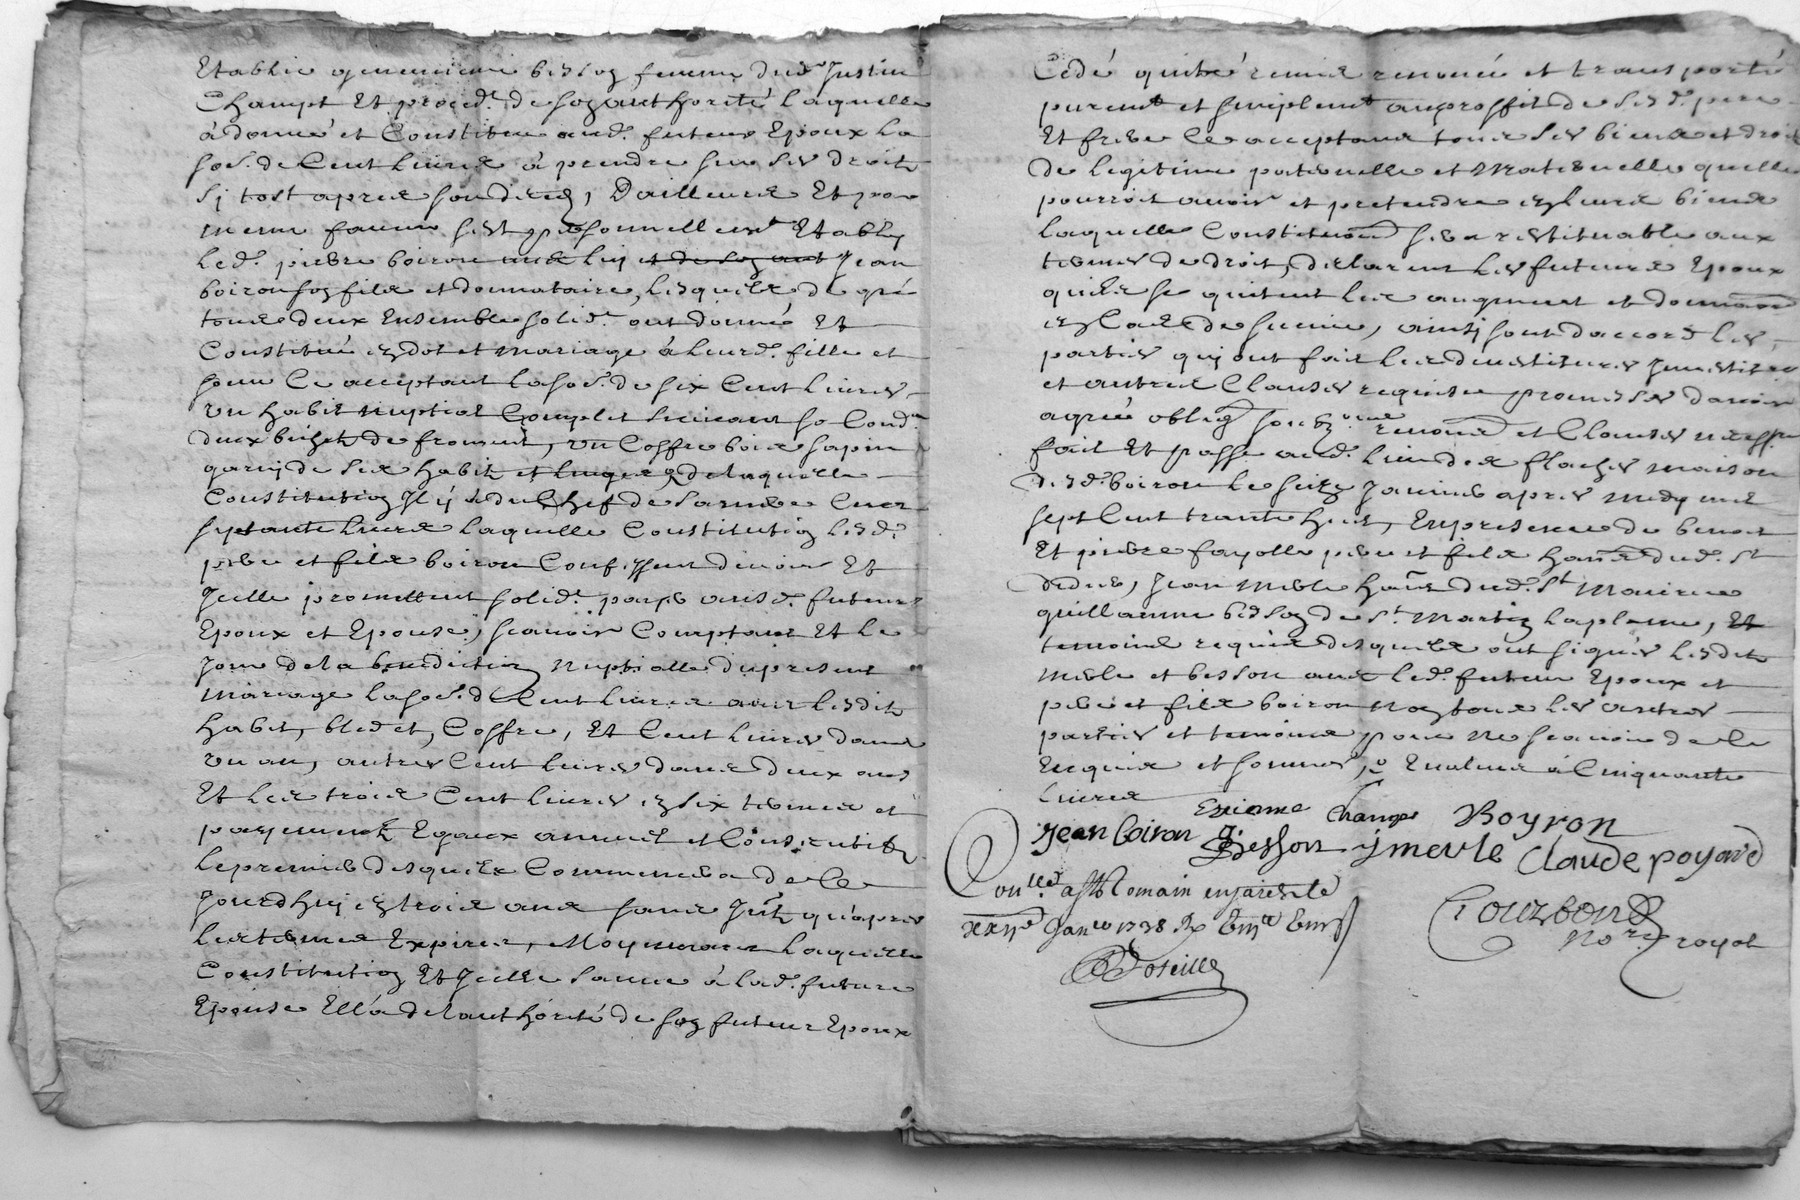 Establie besson femme dud. Justin
Champt Et proced. de son authorité laquelle
à donné et Constitue aud. futeur Epoux la
so.e de Cent livres à prendre sur ses droits
sy tost apres son deces, D'ailleurs Et pour
meme faveur s'est personnellemt Etably
led. pierre boiron avec luy et de son aut Jean
boiron son fils et donnataire, lesquels de gré
tous deux Ensemble solid.t ont donné Et
Constitué en dot et mariage à leurd. fille et
soeur Ce acceptant la so.e de six Cent livres
un habit nuptial Complet suivant sa Cond.on
deux bichets de froment, un Coffre bois sapin
garny de ses habits et linges de laquelle
Constitution Il y a du Chef de la mere Cent
septante livres laquelle Constitution lesd.
pere et fils boiron Confessent devoir Et
Icelle promettent solid.t payer ausd. futeurs
Epoux et Epouse, scavoir Comptant Et le
jour de la benediction Nuptialle du present
mariage la so.e de Cent livres avec lesdits
habit, bled et, Coffre, Et Cent livres dans
un an, autres Cent livres dans deux ans
Et les trois Cent livres en six termes et
payements Egaux annuels et Consecutifs
le premier desquels Commencera de Ce
Jourdhuy en trois ans sans Jnts qu'apres
les termes Expirés, Moyennant laquelle
Constitution Et Icelle sauve à lad. future
Epouse Ell'a de l'authorité de son futeur Epoux
Cédé quitté remis renoncé et transporté
puremt et simplemt au proffit de sesd. pere
Et frere Ce acceptant tous ses biens et droits
De legitime paternelle et Maternelle quelle
pourroit avoir et pretendre en leurs biens
laquelle Constitution sera restituable aux
termes de droit, declarent les futeurs Epoux
quils se quittent les augment et
en Cas de survie, ainsy sont d'accord les
parties quy ont fait les devestitures Investitures
et autres Clauses requises promesses d'avoir
agréé oblig.on renonc.on et Clauses necess.res
fait Et passé aud. lieu des flaches maison
desd. boiron le seize Janvier apres midy mil
sept Cent trante huit, En presence de benoit
Et pierre fayolle pere et fils dud. St
didier, Jean Merle dud. St Maurice
guillaume besson de St Martin laplaine, Et
temoins requis desquels ont signés lesdits
Merle et besson avec led. futeur Epoux et
pere et fils boiron Non tous les autres
parties et temoins pour ne scavoir de Ce
Enquis et sommés, Evalué à Cinquante
livres
Etienne Champt Boyron
Jean Boiron G Besson J merle Claude poyard
Con.llé a St Romain en jarest le
xxij.e Janv.er 1738
Courbon
No.re royal